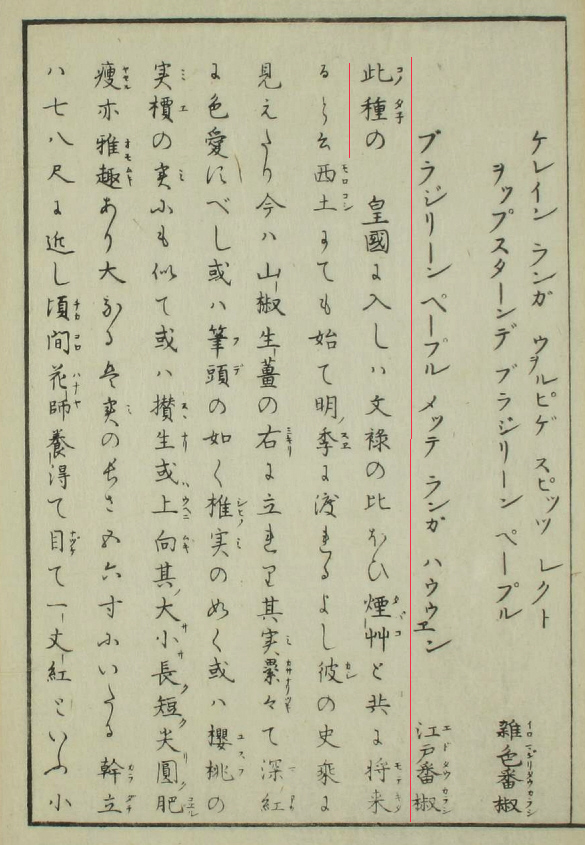 ケレイン ランガ ウヲルピゲ スピッツ レクト
ヲップスターンデ ブラジリーン ペープル 雑色番椒
ブラジリーン ペープル メッテ ランガ ハウウエン 江戸番椒
此種の 皇國に入しハ文禄の比おひ煙艸と共に将来
るとら云西土にても始て明季に渡れるよし彼の史乗に
見えたり今ハ山椒生薑の右に立れり其実累々て深紅
の色愛すべし或ハ筆頭の如く椎実のぬく或ハ櫻桃の
実櫻の実にも似て或ハ攅生或上向其大小長短尖圓肥
瘦亦雅趣あり大なるは実の長さ五六寸にいたる幹立
ハ七八尺に近し頃間花師養得て目て一丈紅といふ小